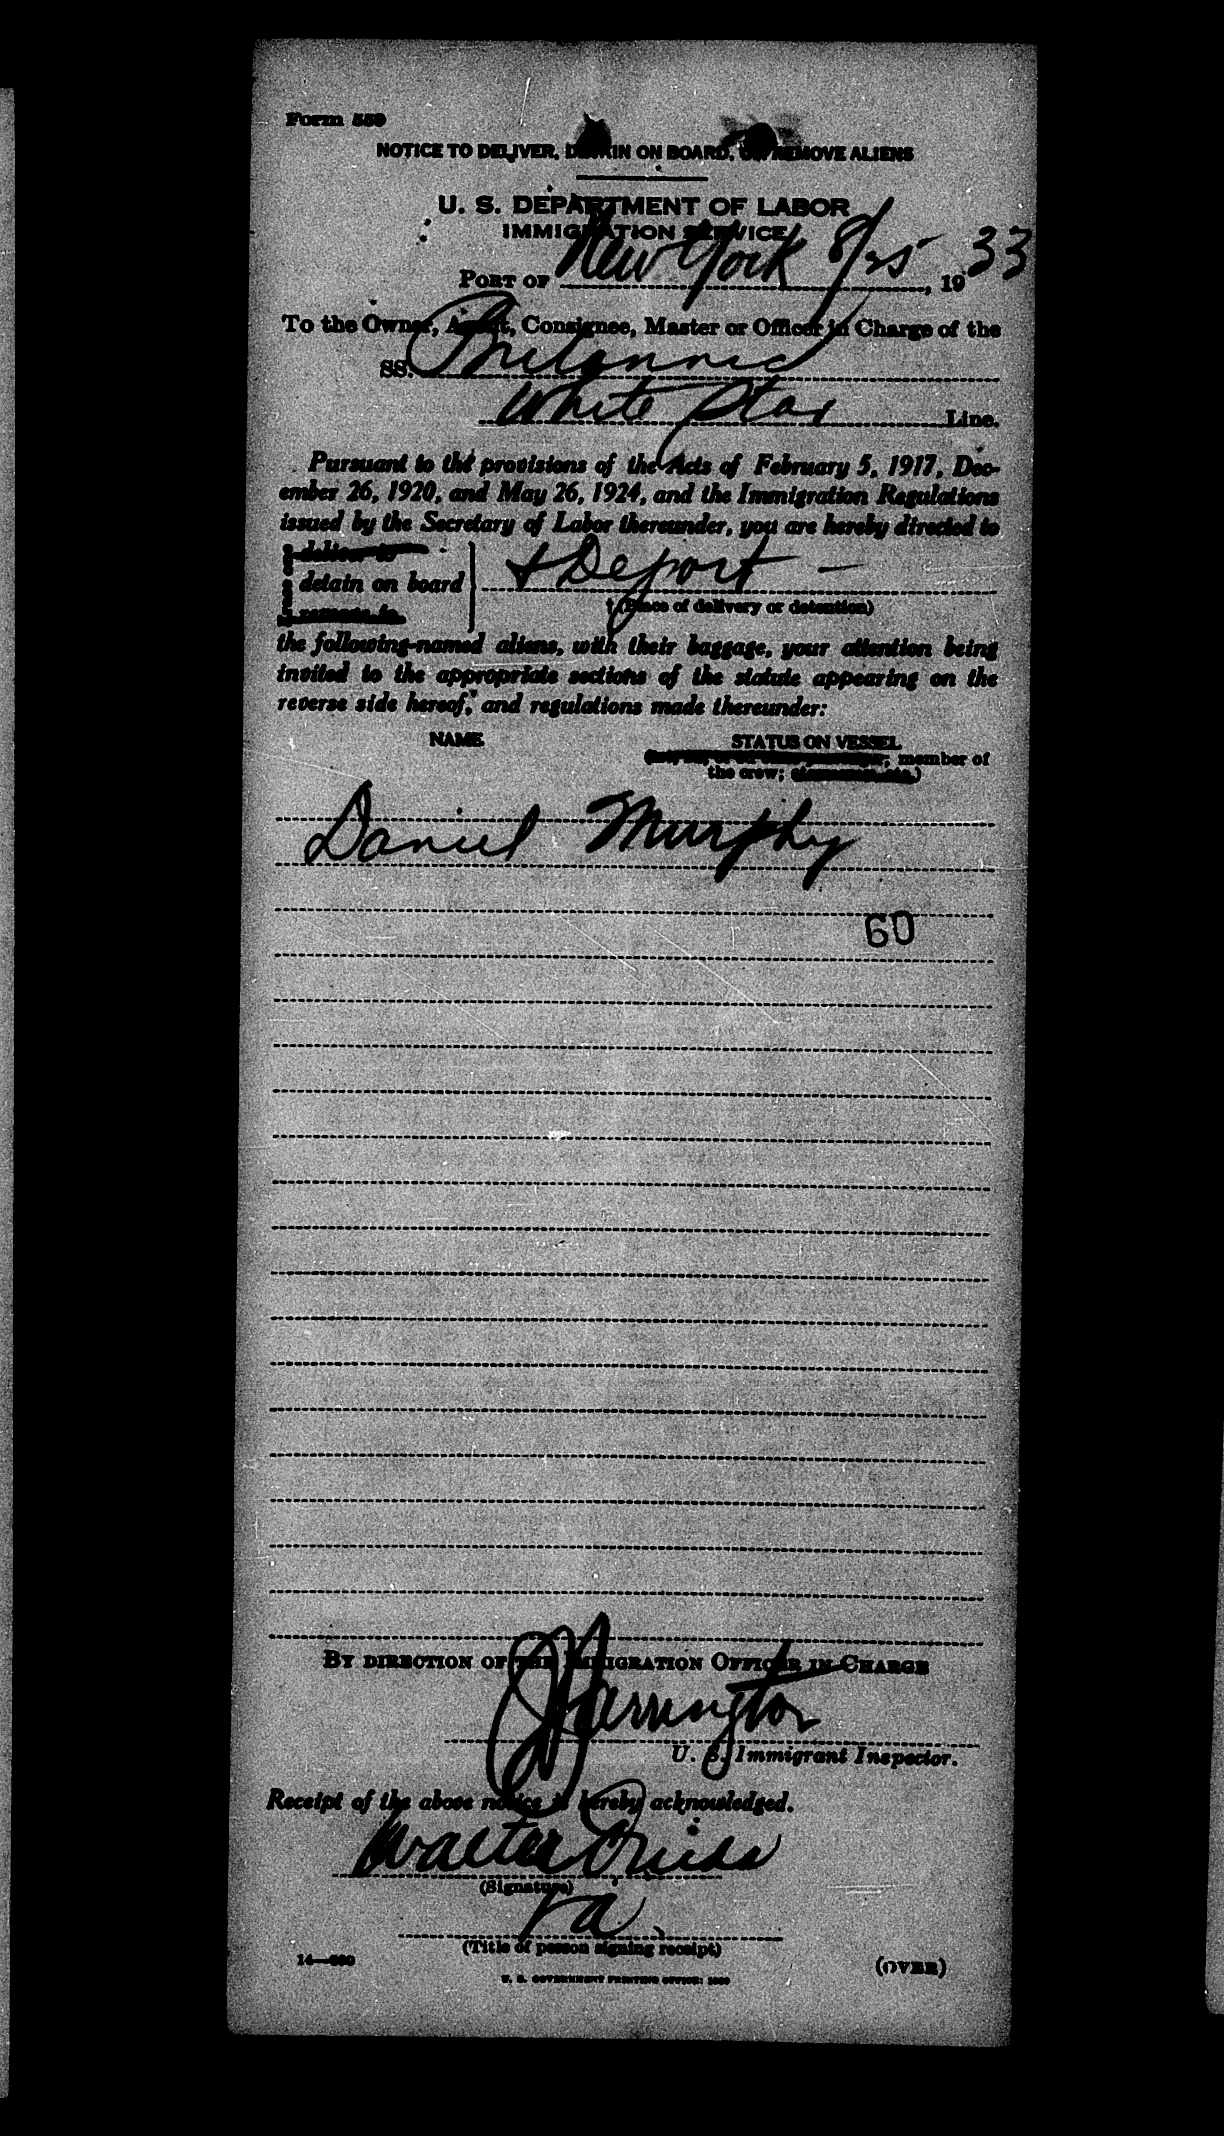 Form 559
NOTICE TO DELIVER, DETAIN ON BOARD, OR REMOVE ALIENS
U. S. DEPARTMENT OF LABOR
IMMIGRATION SERVICE
PORT OF New York 8/25, 1933
To the Owner, Agent, Consignee, Master or Officer in Charge of the
SS. Britannic
White Star Line.
Pursuant to the provisions of the Acts of February 5, 1917, Dec-
ember 26, 1920, and May 26, 1924, and the Immigration Regulations
issued by the Secretary of Labor thereunder, you are hereby directed to
deliver to
detain on board & Deport -
remove to
(Place of delivery or detention)
the following-named aliens, with their baggage, your attention being
invited to the appropriate sections of the statute appearing on the
reverse side hereof, and regulations made thereunder:
NAME STATUS ON VESSEL
member of
the crew;
Daniel Murphy
60
BY DIRECTION OF THE IMMIGRATION OFFICER IN CHARGE
Harrington
U. S. Immigrant Inspector.
Receipt of the above notice is hereby acknowledged.
Walter
(Signature)
(Title of person signing receipt)
U. S. GOVERNMENT PRINTING OFFICE:
(OVER)